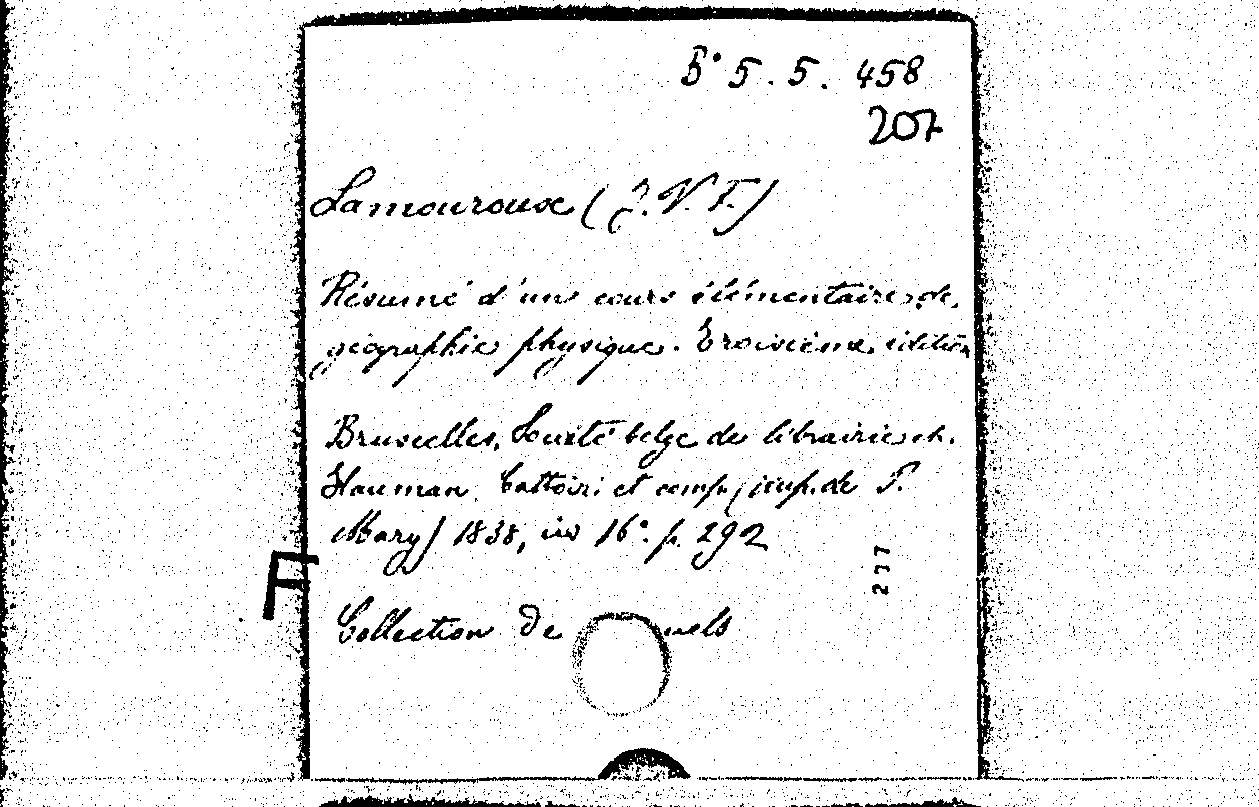 B° 5. 5. 458
207
Lamouroux (J. V. F.)
Résumé d'un cours élémentaire de
géographie physique. Troisième édition
Bruxelles, Société belge de librairie etc.
Hauman, Cattoir et comp. (imp. de P.
Mary) 1838, in 16°. p. 292
277
F
Collection de uels